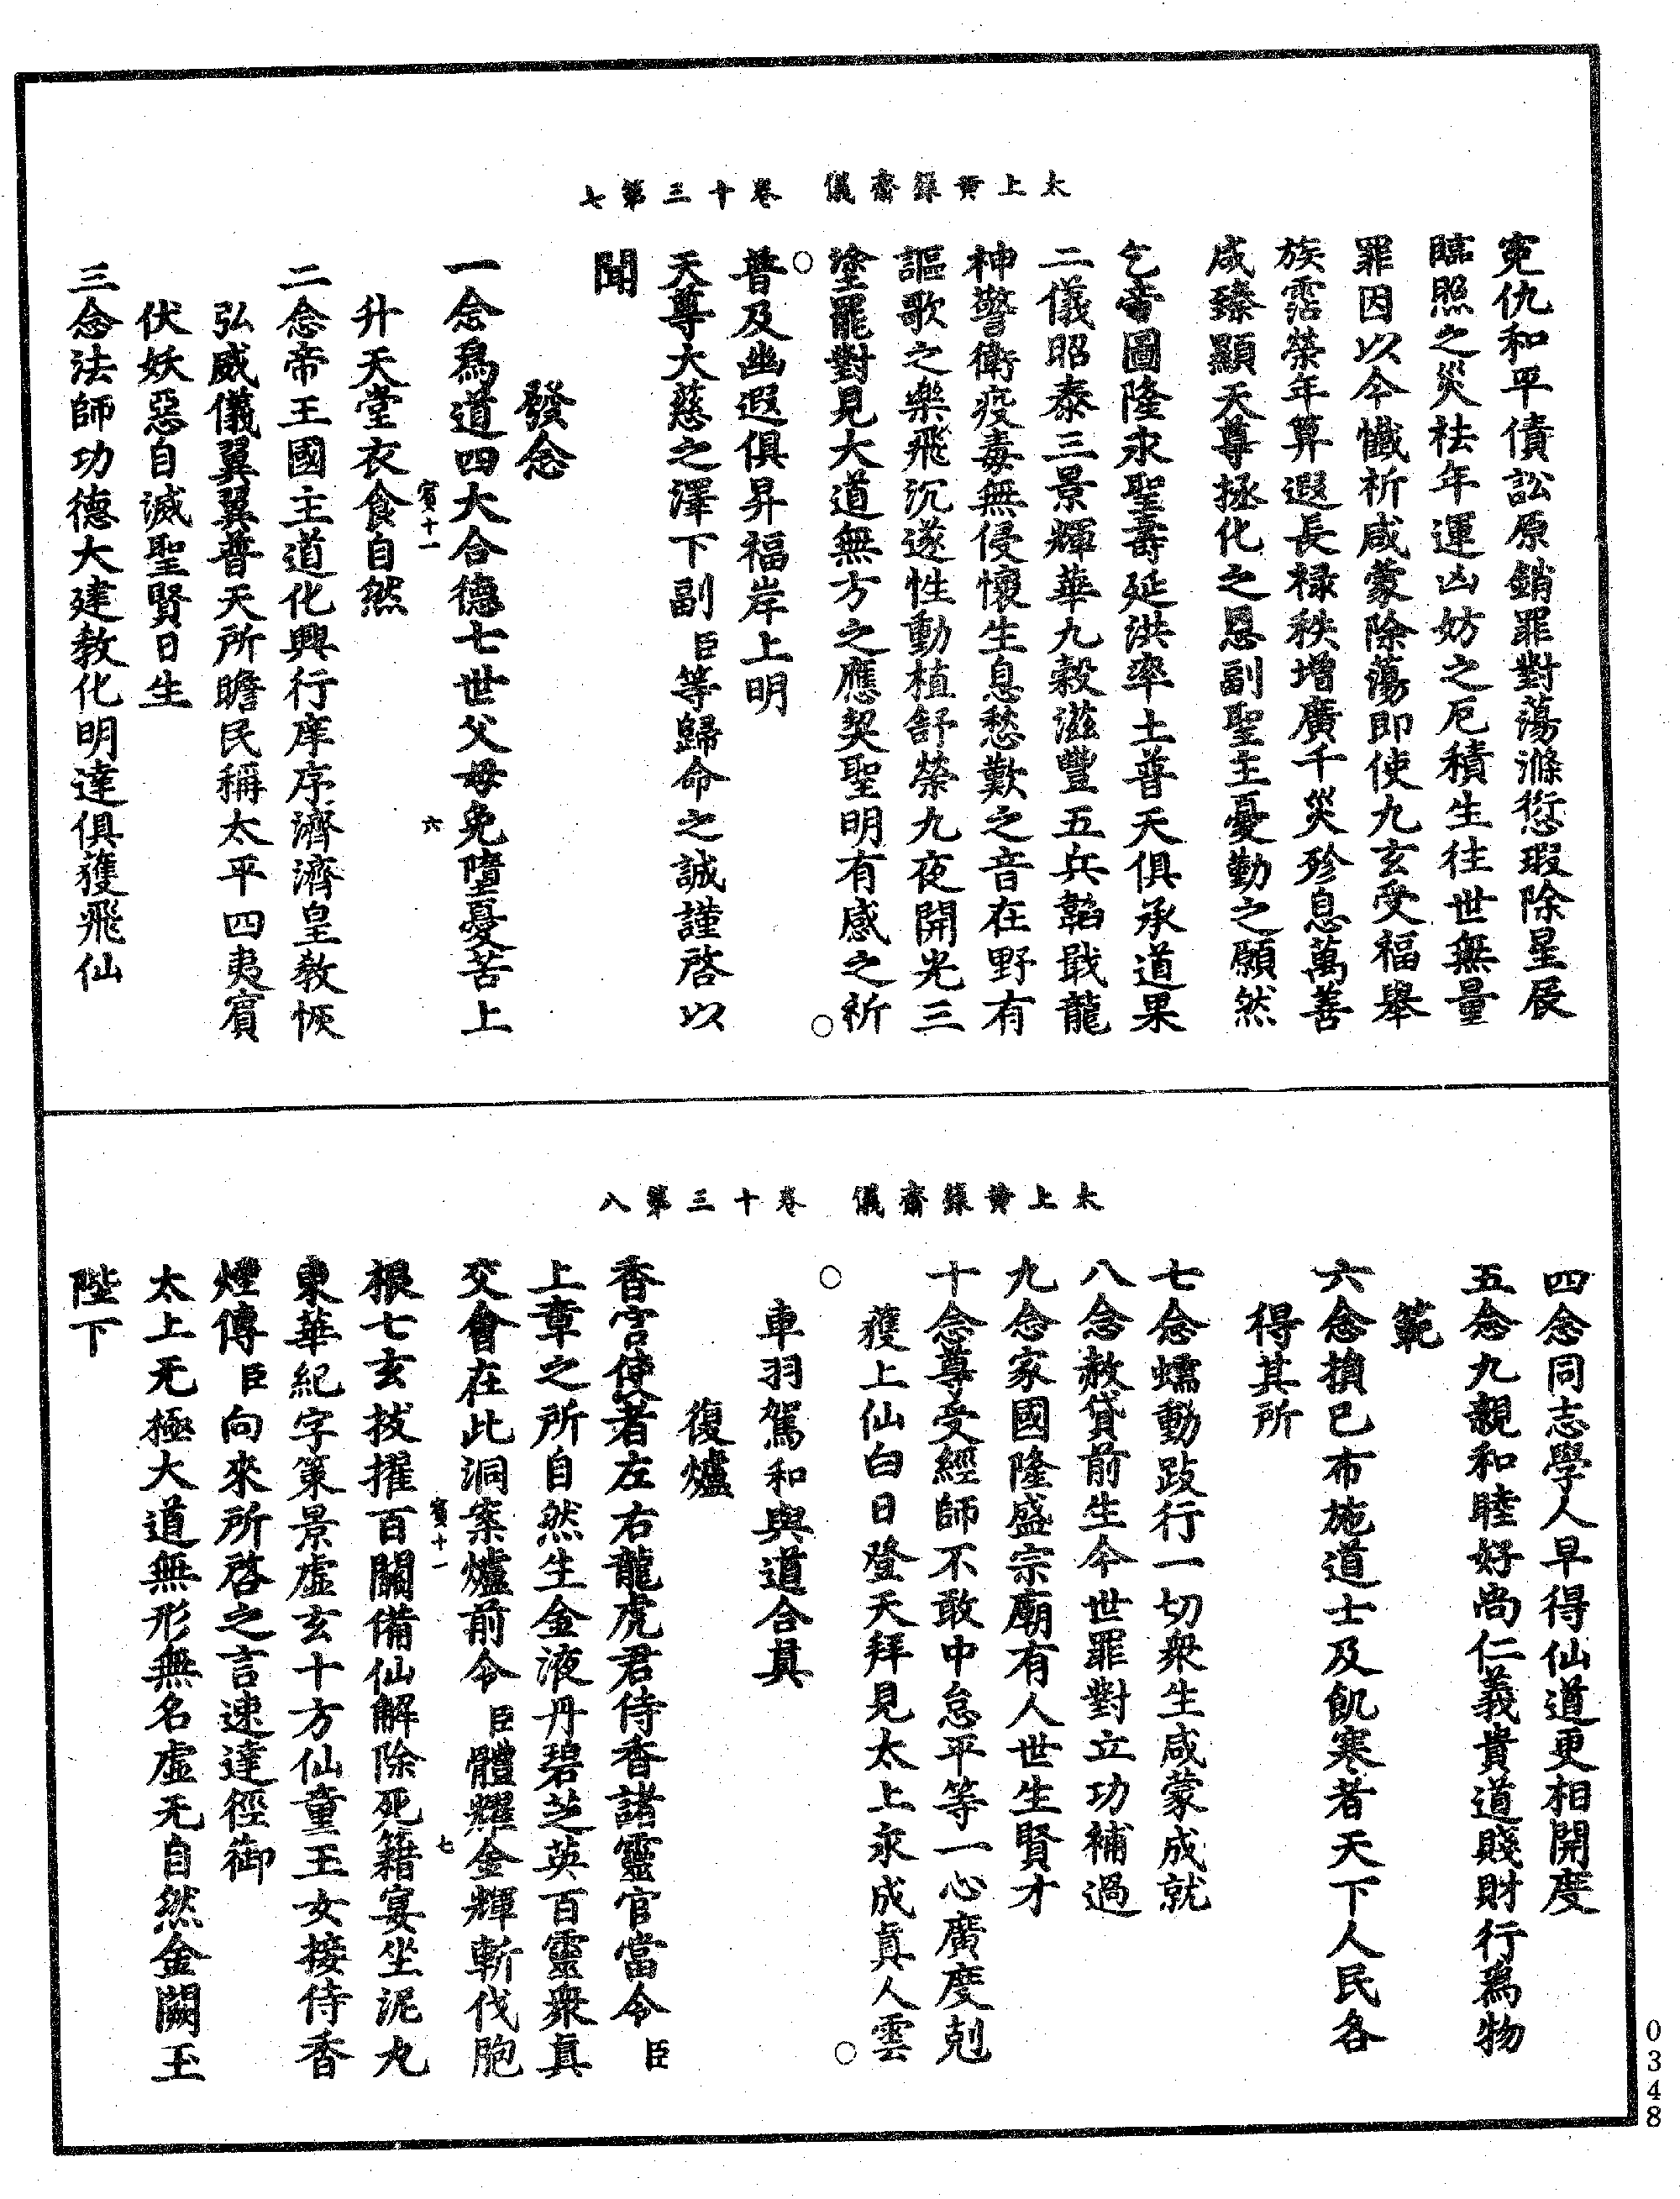 太上黃籙齋儀　卷十三第七
寃仇和平債訟原銷罪對蕩滌愆瑕除星辰
臨照之災祛年運凶妨之厄積生往世無量
罪因以今懺祈咸蒙除蕩即使九玄受福舉
族霑榮年算遐長祿秩增廣千災殄息萬善
咸臻顯天尊拯化之恩副聖主憂勤之願然
乞帝圖隆永聖壽延洪率土普天俱承道果
二儀昭泰三景輝華九穀滋豐五兵韜戢龍
神警衛疫毒無侵懷生息愁歎之音在野有
謳歌之樂飛沉遂性動植舒榮九夜開光三
塗罷對見大道無方之應契聖明有感之祈
普及幽遐俱昇福岸上明
天尊大慈之澤下副臣等歸命之誠謹啓以
聞
發念
一念爲道四大合德七世父母免墮憂苦上
賓十一　六
升天堂衣食自然
二念帝王國主道化興行庠序濟濟皇教恢
弘威儀翼翼普天所瞻民稱太平四夷賓
伏妖惡自滅聖賢日生
三念法師功德大建教化明達俱獲飛仙
太上黃籙齋儀　卷十三第八
四念同志學人早得仙道更相開度
五念九親和睦好尚仁義貴道賤財行爲物
範
六念損己布施道士及飢寒者天下人民各
得其所
七念蠕動跂行一切衆生咸蒙成就
八念赦貸前生今世罪對立功補過
九念家國隆盛宗廟有人世生賢才
十念尊受經師不敢中怠平等一心廣度剋
獲上仙白日登天拜見太上永成真人雲
車羽駕和與道合真
復爐
香官使者左右龍虎君侍香諸靈官當令臣
上章之所自然生金液丹碧芝英百靈衆真
交會在此洞案爐前令臣體耀金輝斬伐胞
賓十一　七
根七玄拔擢百關備仙解除死籍宴坐泥丸
東華紀字策景虛玄十方仙童玉女接侍香
煙傳臣向來所啓之言速達徑御
太上无極大道無形無名虛无自然金闕玉
陛下
0348